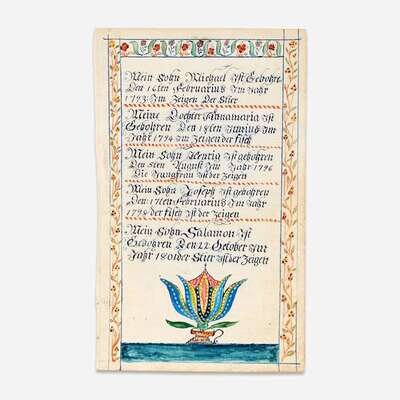 Mein Sohn Michael Ist Gebohre
Den 16ten Februarius Im Jahr
1793: Im Zeigen Der Stier
Meine Dochter Annamaria Ist
Gebohren Den 18ten Iunius Im
Jahr 1794 Im Zeigen der fisch
Mein Sohn Henria Ist gebohren
Den 5ten August Im Jahr 1796
Die Jungfrau Ist der Zeigen
Mein Sohn Joseph Ist gebohren
Den 17ten Februarius Im Jahr
1799 der fisch Ist der Zeigen
Mein Sohn Salamon Ist
Gebohren Den 22 October Im
Jahr 1801 der Stier Ist der Zeigen